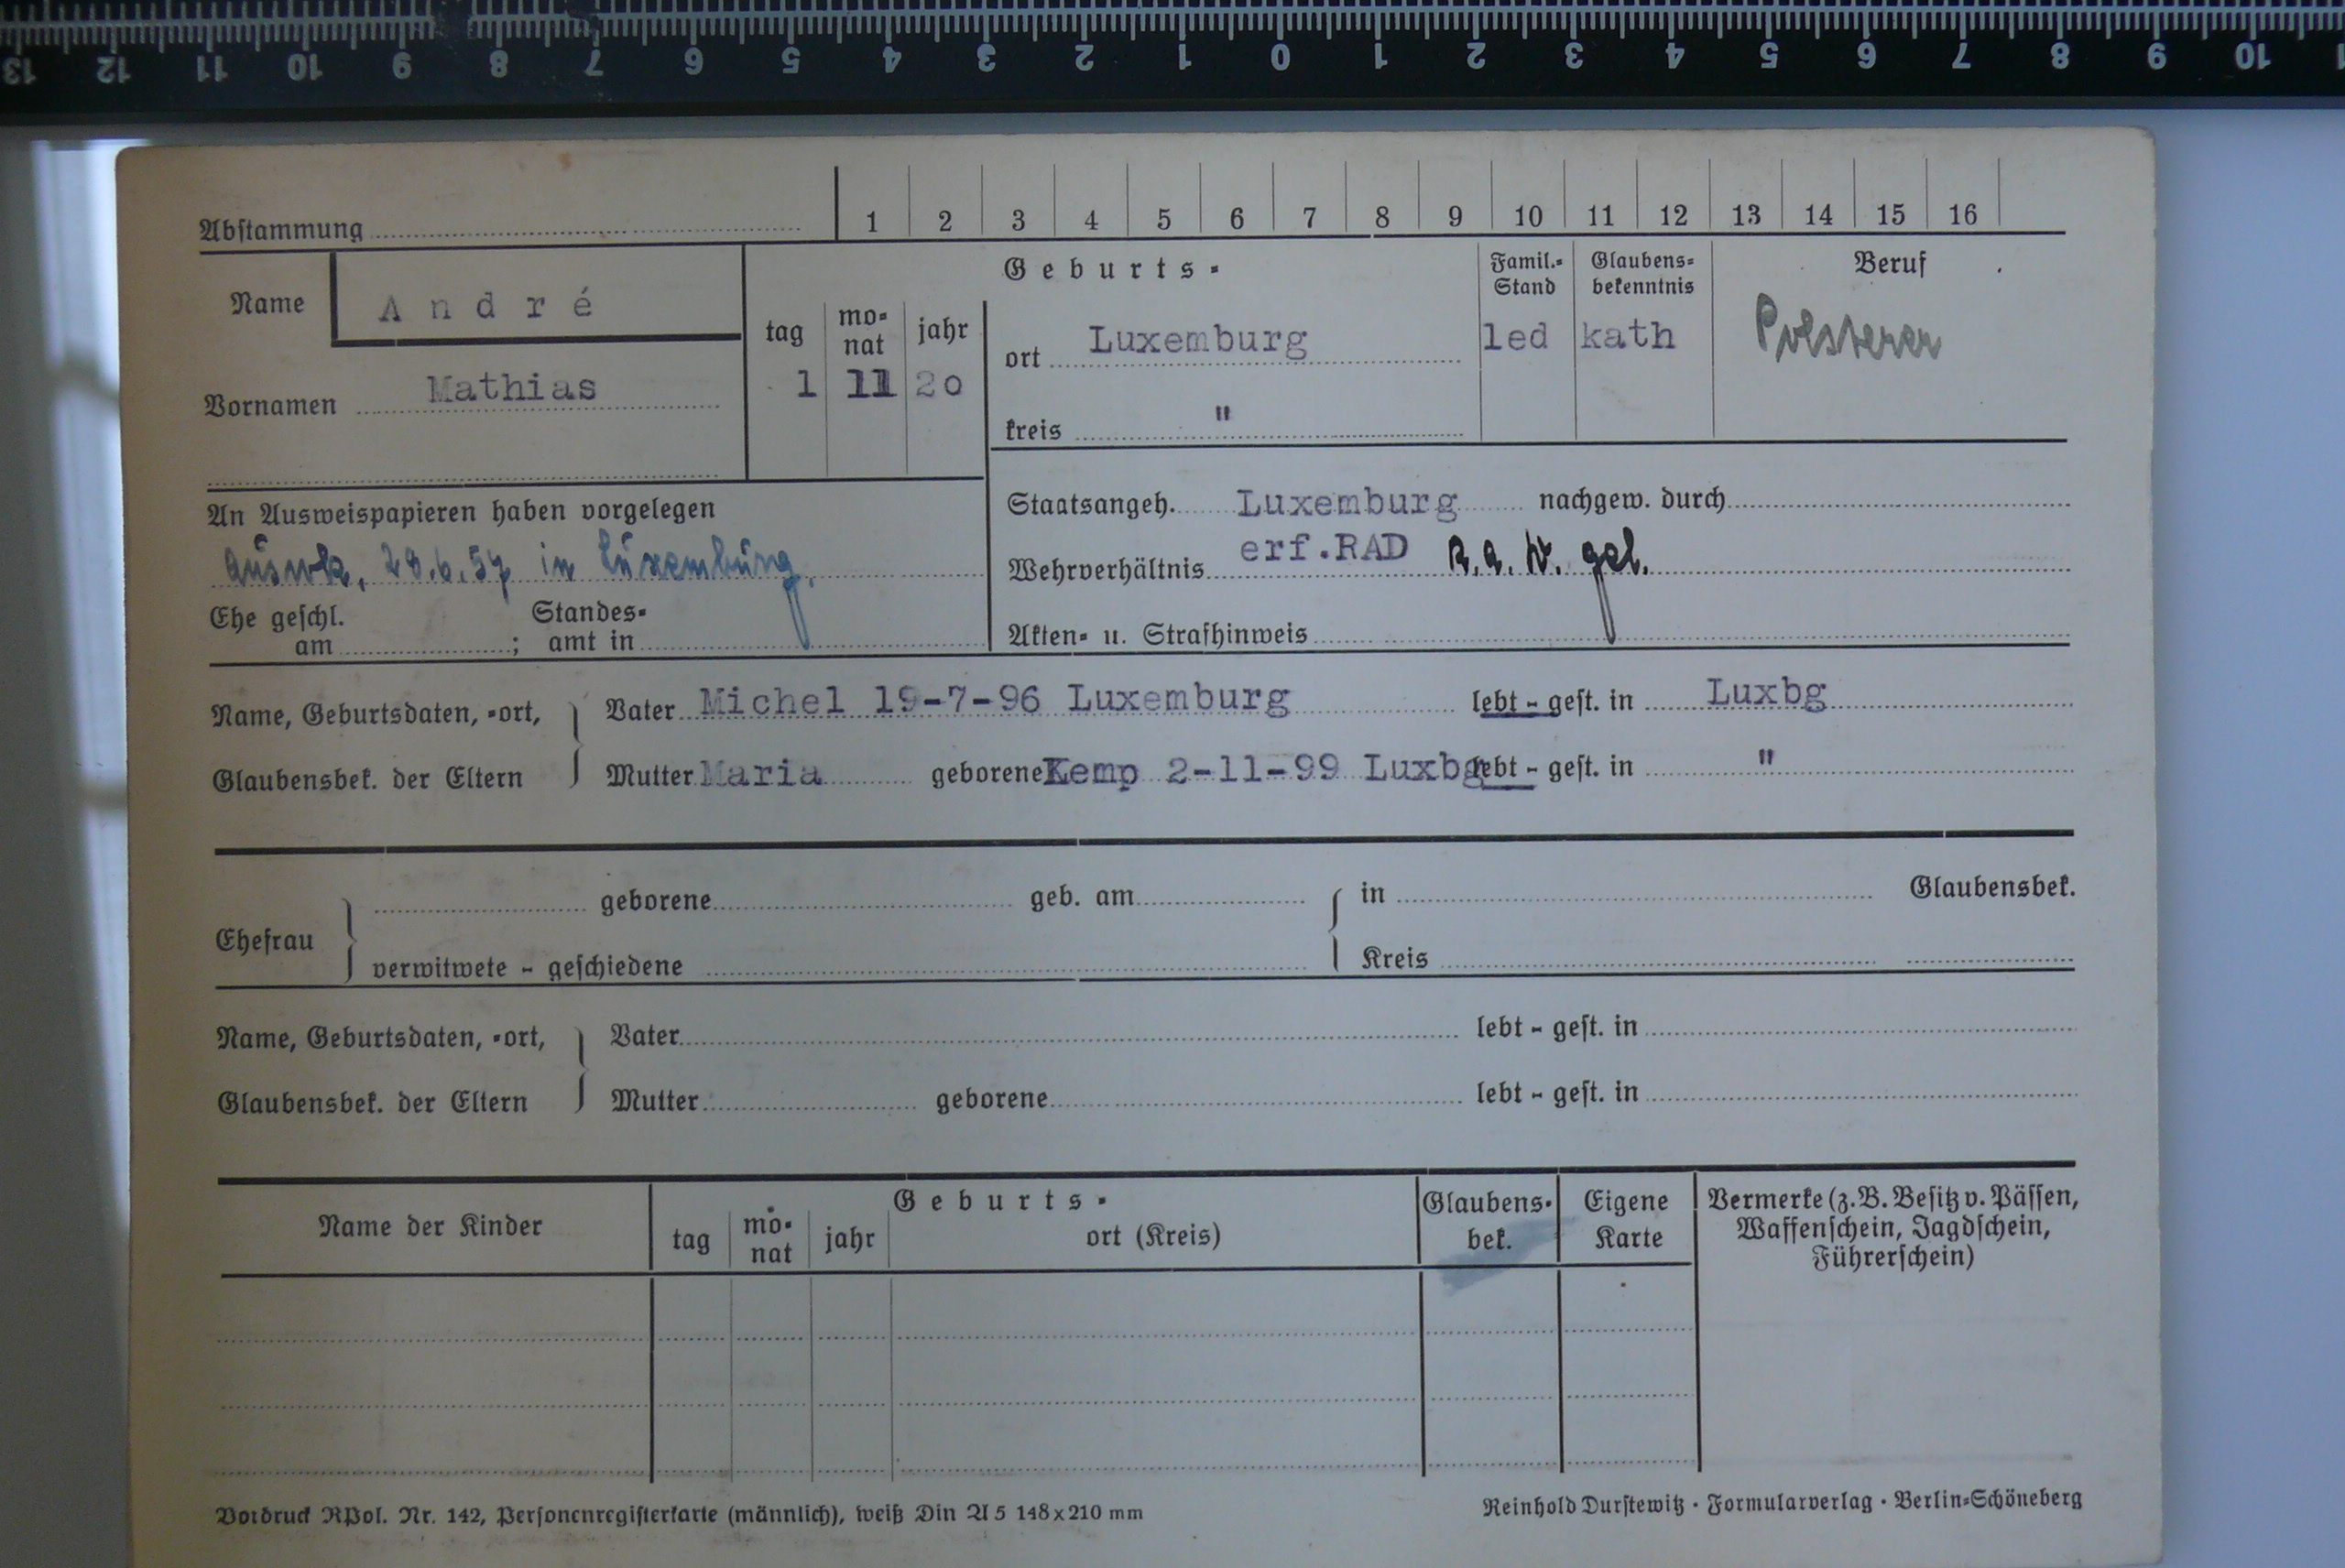 13 12 11 10 9 8 7 6 5 4 3 2 1 0 1 2 3 4 5 6 7 8 9 10
Abstammung 1 2 3 4 5 6 7 8 9 10 11 12 13 14 15 16
Name André
Vornamen Mathias
Geburts-
tag mo-nat jahr
1 11 20
ort Luxemburg
kreis "
Famil.-Stand
led
Glaubens-bekenntnis
kath
Beruf
Polsterer
An Ausweispapieren haben vorgelegen
Auswk, 28.6.37 in Luxemburg.
Ehe geschl. am ; Standes-amt in
Staatsangeh. Luxemburg nachgew. durch
Wehrverhältnis erf.RAD R.A.W. gel.
Akten- u. Strafhinweis
Name, Geburtsdaten, -ort, Vater Michel 19-7-96 Luxemburg lebt - gest. in Luxbg
Glaubensbek. der Eltern Mutter Maria geborene Kemp 2-11-99 Luxbg lebt - gest. in "
Ehefrau geborene geb. am in Glaubensbek.
verwitwete - geschiedene Kreis
Name, Geburtsdaten, -ort, Vater lebt - gest. in
Glaubensbek. der Eltern Mutter geborene lebt - gest. in
Name der Kinder
Geburts-
tag mo-nat jahr ort (Kreis)
Glaubens-bek.
Eigene Karte
Vermerke (z. B. Besitz v. Pässen,
Waffenschein, Jagdschein,
Führerschein)
Vordruck RPol. Nr. 142, Personenregisterkarte (männlich), weiß Din A 5 148x210 mm
Reinhold Durstewitz · Formularverlag · Berlin-Schöneberg